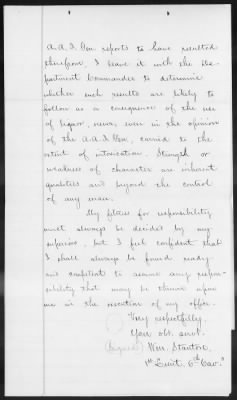 A.A.I. Gen. reports to have resulted
therefrom, I leave it with the De-
partment Commander to determine
whether such results are likely to
follow as a consequence of the use
of liquor, never, even in the opinion
of the A.A.I. Gen., carried to the
extent of intoxication. Strength or
weakness of character are inherent
qualities and beyond the control
of any man.
My fitness for responsibility
must always be decided by my
superiors, but I feel confident that
I shall always be found ready
and competent to assume any respon-
sibility that may be thrown upon
me in the execution of my office.
Very respectfully
Your obt. servt.
(Signed) Wm. Stanton,
1st Lieut. 6th Cav.